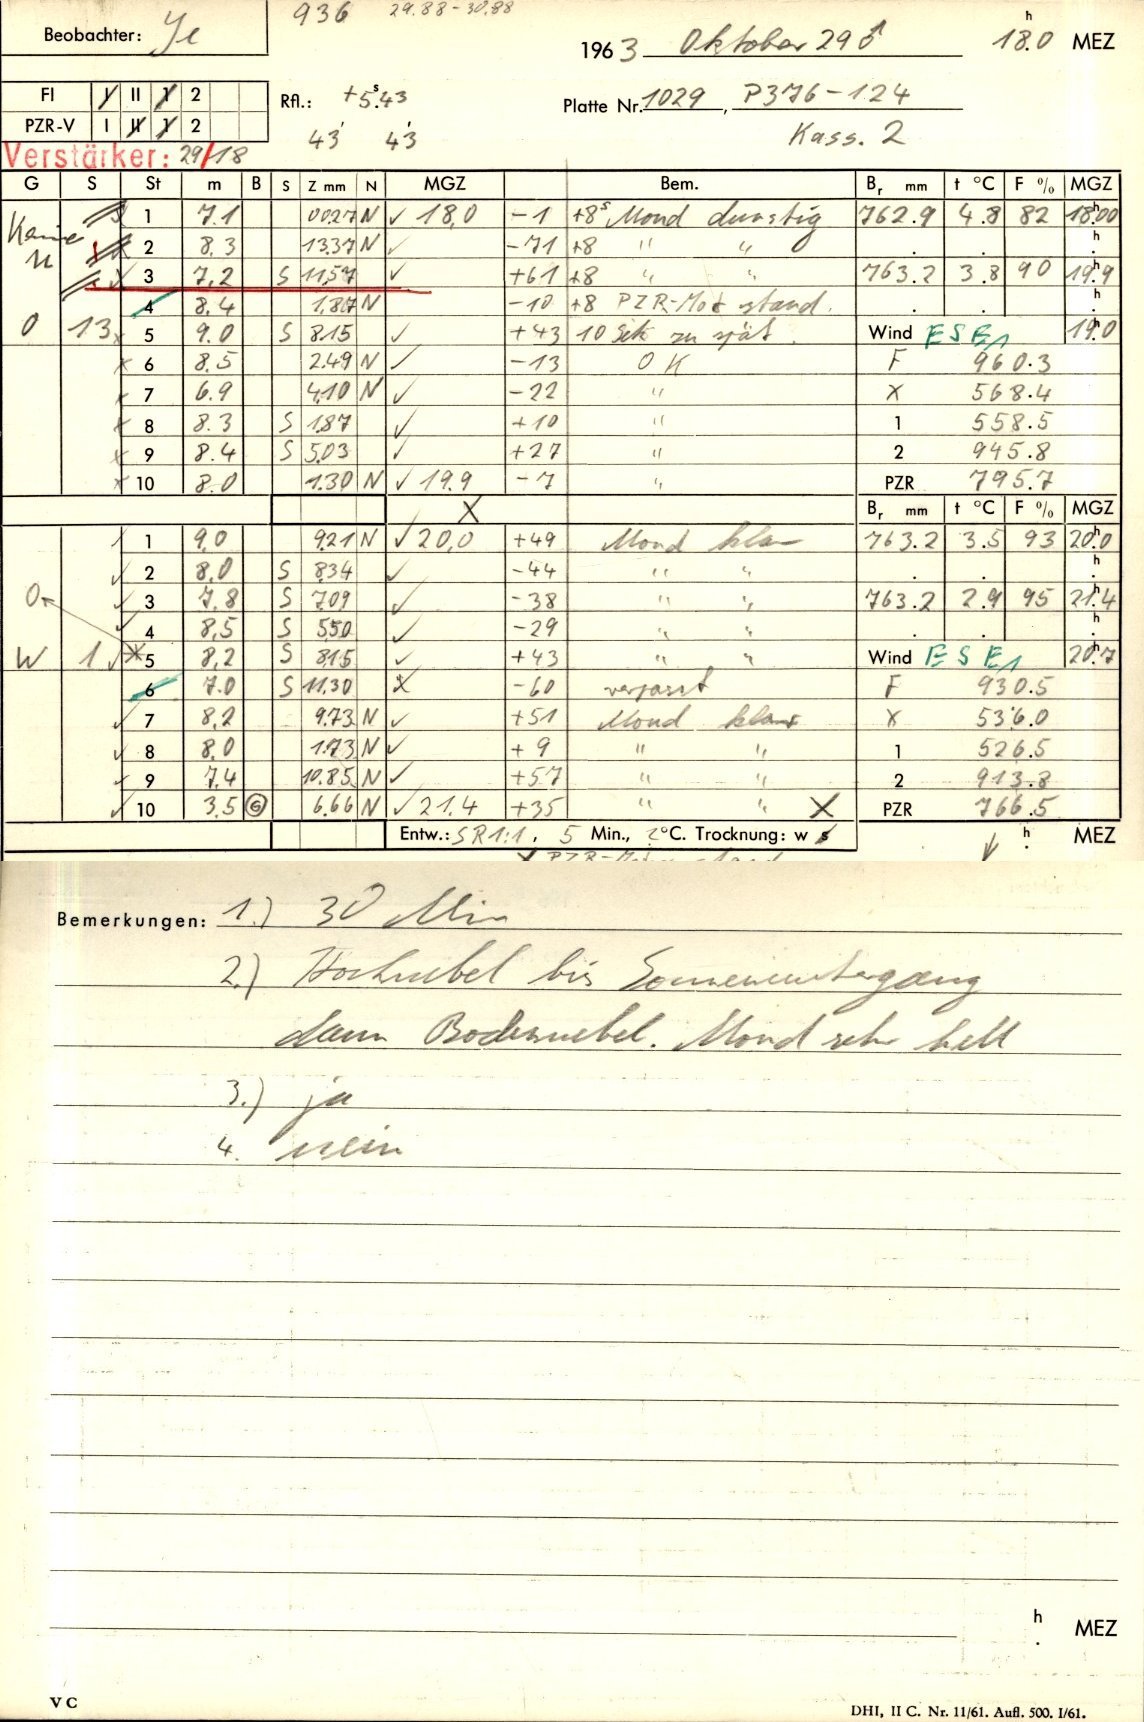 936 29.88-30.88
Beobachter: Ye
1963 Oktober 29 ♂ 18.0 h MEZ
FI I II 1 2
Rfl.: +5.s43
Platte Nr. 1029, P376-124
PZR-V I II 1 2
43 43
Kass. 2
Verstärker: 29/18
G S St m B S Z mm N MGZ Bem. Br mm t °C F % MGZ
Keine 1 7.1 0027 N ✓ 18,0 -1 +8s Mond dunstig 762.9 4.8 82 18h00
2 8.3 1337 N ✓ -71 +8 " " . . h
3 7,2 S 11,57 ✓ +61 +8 " " 763.2 3.8 90 19h9
4 8.4 1,87 N -10 +8 PZR-Mot stand. . . h
0 13 x 5 9.0 S 815 ✓ +43 10 Sek zu spät. Wind E S E1 19h0
x 6 8.5 2.49 N ✓ -13 OK F 960.3
x 7 6.9 4,10 N ✓ -22 " X 568.4
x 8 8.3 S 187 ✓ +10 " 1 558.5
x 9 8.4 S 5,03 ✓ +27 " 2 945.8
x 10 8.0 1.30 N ✓ 19.9 -7 " PZR 795.7
X Br mm t °C F % MGZ
1 9,0 921 N ✓ 20,0 +49 Mond klar 763.2 3.5 93 20h0
✓ 2 8,0 S 834 ✓ -44 " " . . h
0 ✓ 3 7,8 S 709 ✓ -38 " " 763.2 2.9 95 21h4
✓ 4 8,5 S 550 ✓ -29 " " . . h
W 1 ✓ x 5 8,2 S 815 ✓ +43 " " Wind E S E1 20h7
6 7.0 S 11.30 x -60 verpasst F 930.5
✓ 7 8,2 9.73 N ✓ +51 Mond klar X 536.0
✓ 8 8,0 1.73 N ✓ +9 " " 1 526.5
✓ 9 7,4 10.85 N ✓ +57 " " 2 913.8
✓ 10 3,5 G 6.66 N ✓ 21.4 +35 " " X PZR 766.5
Entw.: SR1:1, 5 Min., °C. Trocknung: w s h MEZ
Bemerkungen: 1.) 30 Min
2.) Hochnebel bis Sonnenuntergang
dann Bodennebel. Mond sehr hell
3.) ja
4. nein
h MEZ
V C
DHI, II C. Nr. 11/61. Aufl. 500. I/61.